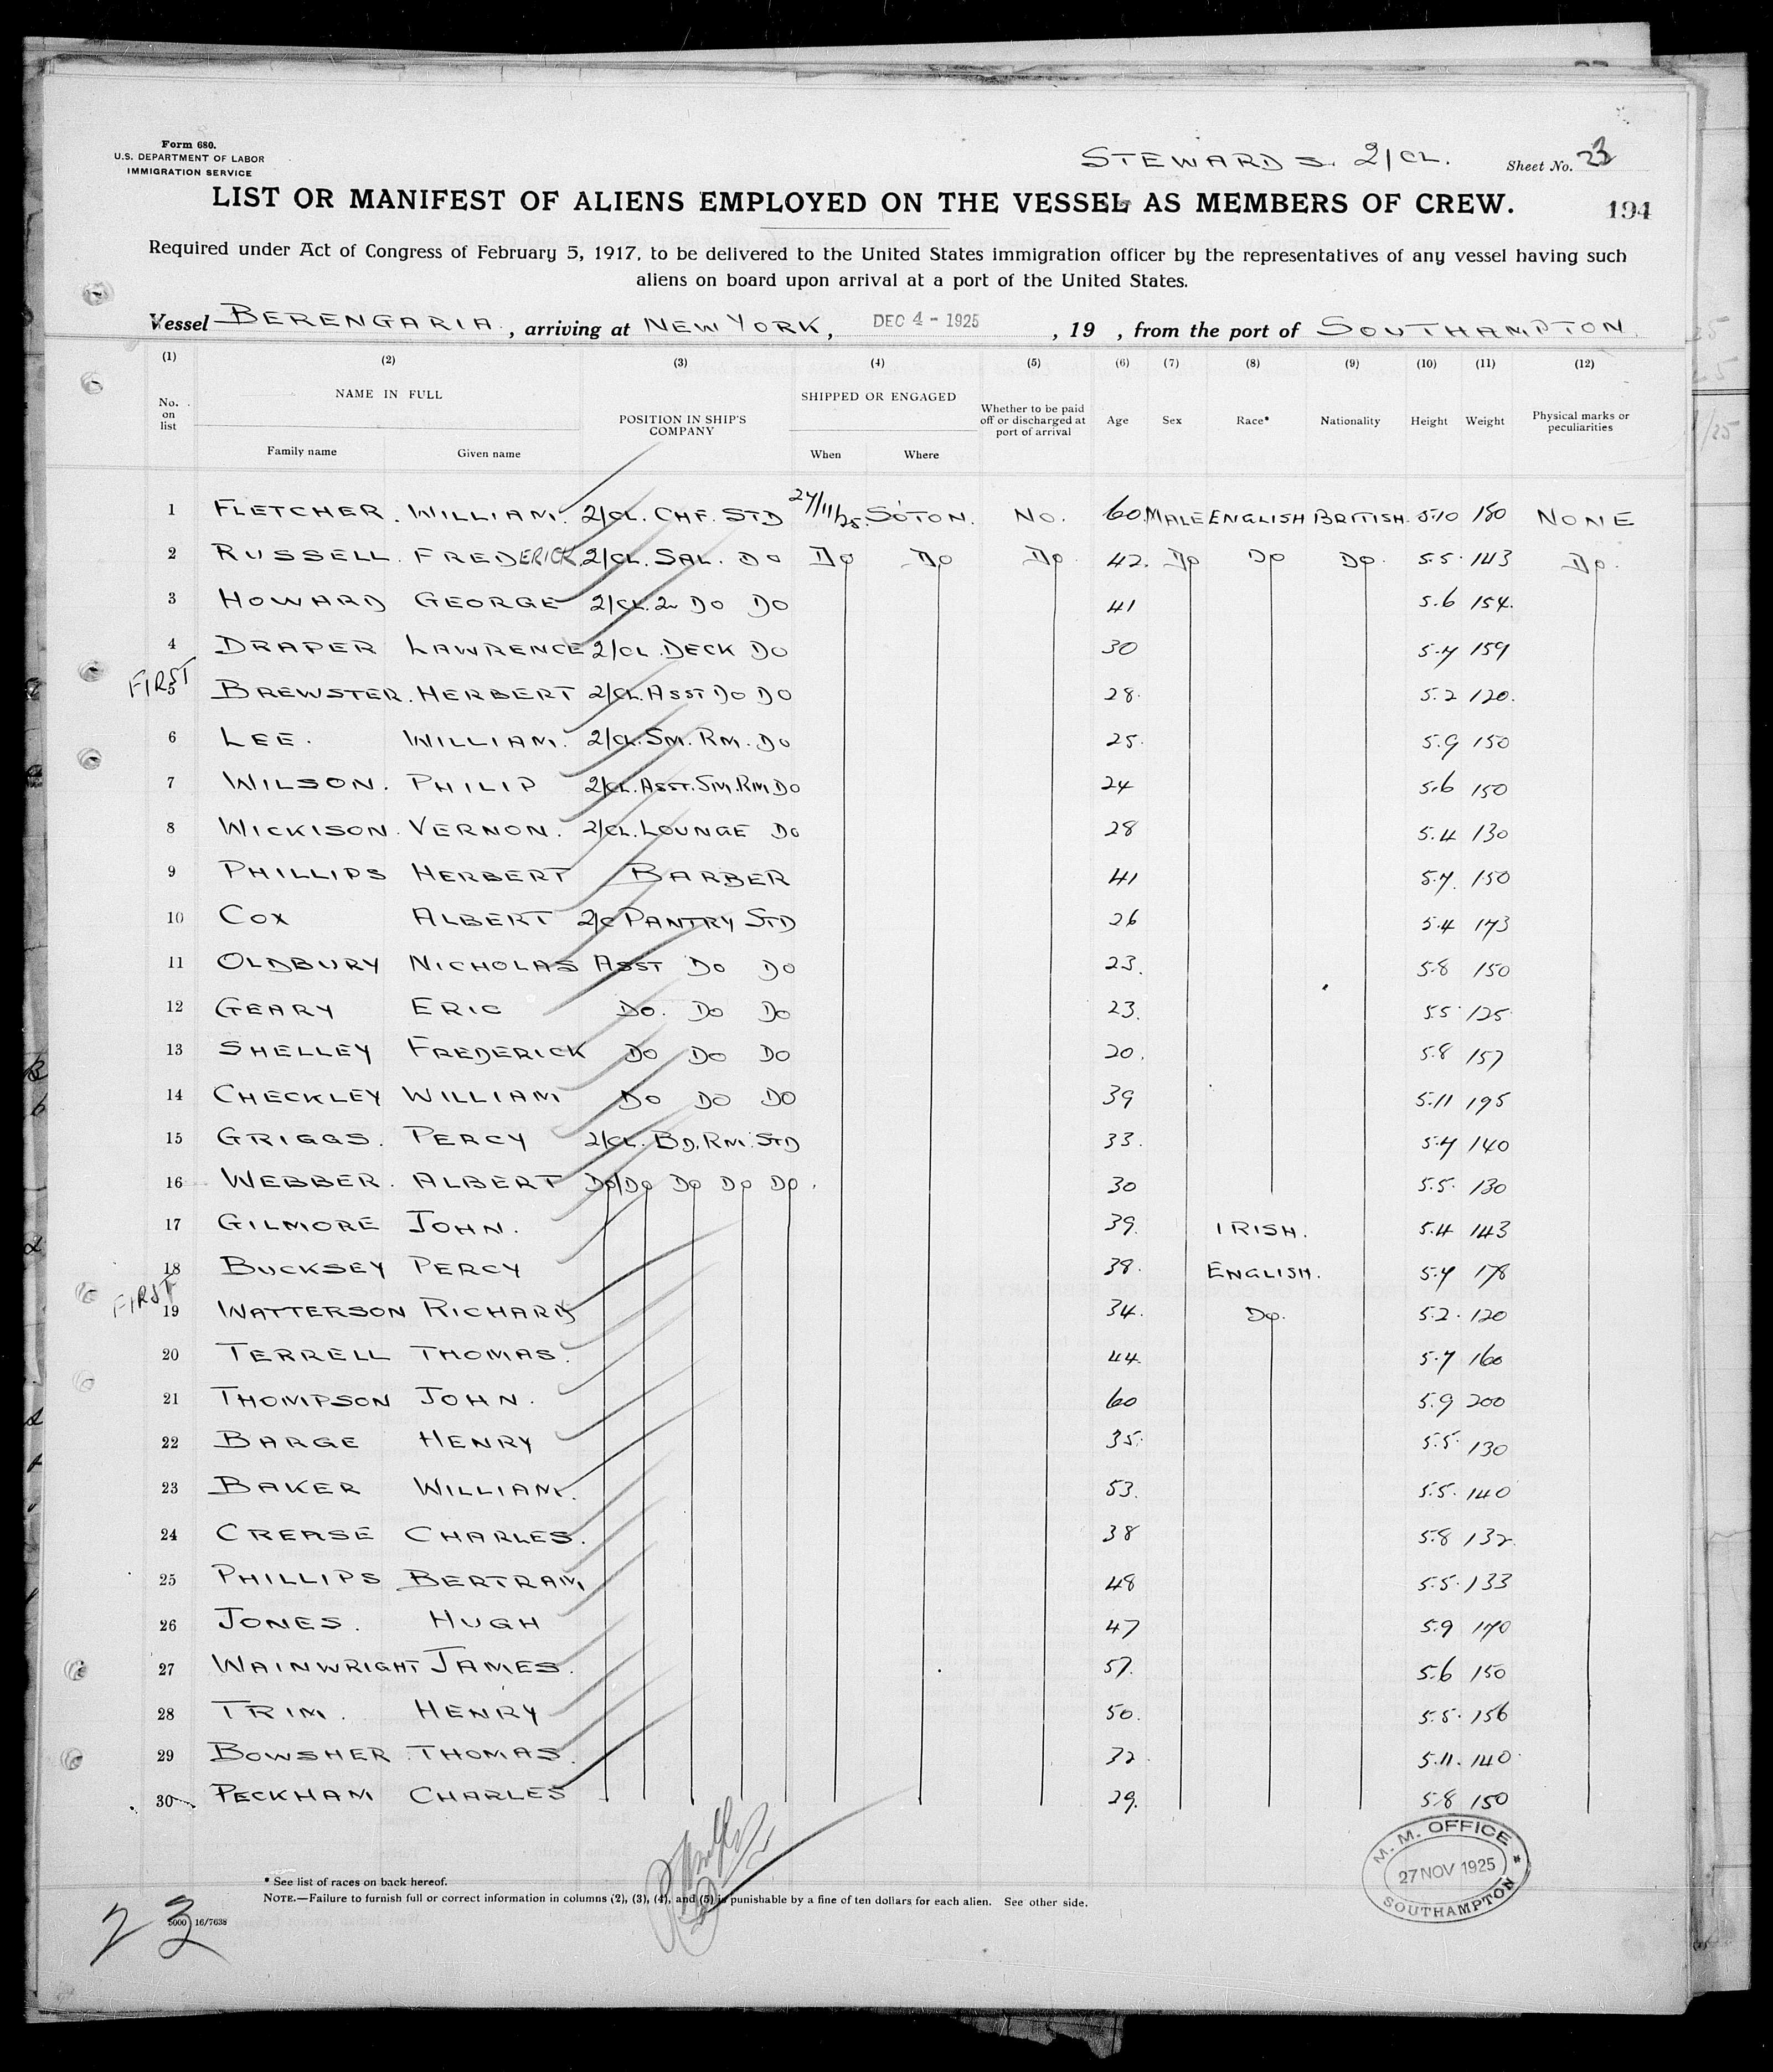 Form 680.
U.S. DEPARTMENT OF LABOR
IMMIGRATION SERVICE
STEWARDS. 2/CL. Sheet No. 23
LIST OR MANIFEST OF ALIENS EMPLOYED ON THE VESSEL AS MEMBERS OF CREW. 194
Required under Act of Congress of February 5, 1917, to be delivered to the United States immigration officer by the representatives of any vessel having such
aliens on board upon arrival at a port of the United States.
Vessel BERENGARIA, arriving at NEW YORK, DEC 4 - 1925, 19 , from the port of SOUTHAMPTON.
(1) (2) (3) (4) (5) (6) (7) (8) (9) (10) (11) (12)
No. on list NAME IN FULL Family name Given name POSITION IN SHIP'S COMPANY SHIPPED OR ENGAGED When Where Whether to be paid off or discharged at port of arrival Age Sex Race* Nationality Height Weight Physical marks or peculiarities
1 FLETCHER. WILLIAM. 2/CL. CHF. STD 27/11/25. SOTON. NO. 60 MALE ENGLISH BRITISH. 5.10 180 NONE
2 RUSSELL. FREDERICK 2/CL. SAL. DO DO DO DO 42. DO DO DO. 5.5. 143 DO.
3 HOWARD GEORGE 2/CL. 2ND DO 41 5.6 154.
4 DRAPER LAWRENCE 2/CL. DECK DO 30 5.7 159
FIRST
5 BREWSTER. HERBERT 2/CL. ASST DO DO 28. 5.2 120.
6 LEE. WILLIAM. 2/CL. SM. RM. DO 25. 5.9 150
7 WILSON. PHILIP 2/CL. ASST. SM. RM DO 24 5.6 150
8 WICKISON. VERNON. 2/CL. LOUNGE DO 28 5.4 130
9 PHILLIPS HERBERT BARBER 41 5.7. 150
10 COX ALBERT 2/C PANTRY STD 26 5.4 173
11 OLDBURY NICHOLAS ASST DO DO 23. 5.8 150
12 GEARY ERIC DO. DO DO 23. 5.5. 125
13 SHELLEY FREDERICK DO DO DO 20. 5.8 157
14 CHECKLEY WILLIAM DO DO DO 39 5.11 195
15 GRIGGS. PERCY 2/CL. BD. RM. STD 33. 5.7 140
16 WEBBER. ALBERT DO/DO DO DO DO. 30 5.5. 130
17 GILMORE JOHN. 39. IRISH. 5.4 143
18 BUCKSEY PERCY 38. ENGLISH. 5.7 178
FIRST
19 WATTERSON RICHARD 34. DO. 5.2. 120
20 TERRELL THOMAS. 44. 5.7 160
21 THOMPSON JOHN. 60 5.9 200
22 BARGE HENRY 35. 5.5. 130
23 BAKER WILLIAM. 53. 5.5. 140
24 CREASE CHARLES. 38 5.8 132.
25 PHILLIPS BERTRAM 48 5.5. 133
26 JONES. HUGH 47 5.9 170
27 WAINWRIGHT JAMES. 57. 5.6 150
28 TRIM. HENRY 50. 5.5. 156
29 BOWSHER THOMAS. 32. 5.11. 140.
30 PECKHAM CHARLES 29. 5.8 150
M. M. OFFICE
27 NOV 1925
SOUTHAMPTON
* See list of races on back hereof.
NOTE.—Failure to furnish full or correct information in columns (2), (3), (4), and (5) is punishable by a fine of ten dollars for each alien. See other side.
5000 16/7638
23